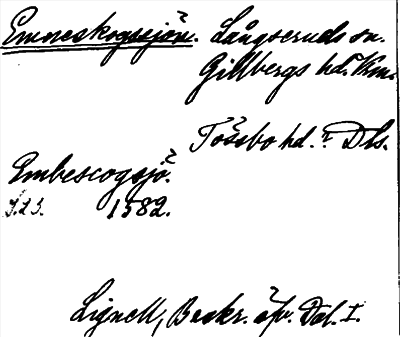 Emneskogssjön. Långseruds sn.
Gillbergs hd. Vrm.
Tössbo hd. Dls.
Embescogsjö.
1582.
Lignell, Beskr. öfv. Dal. I.